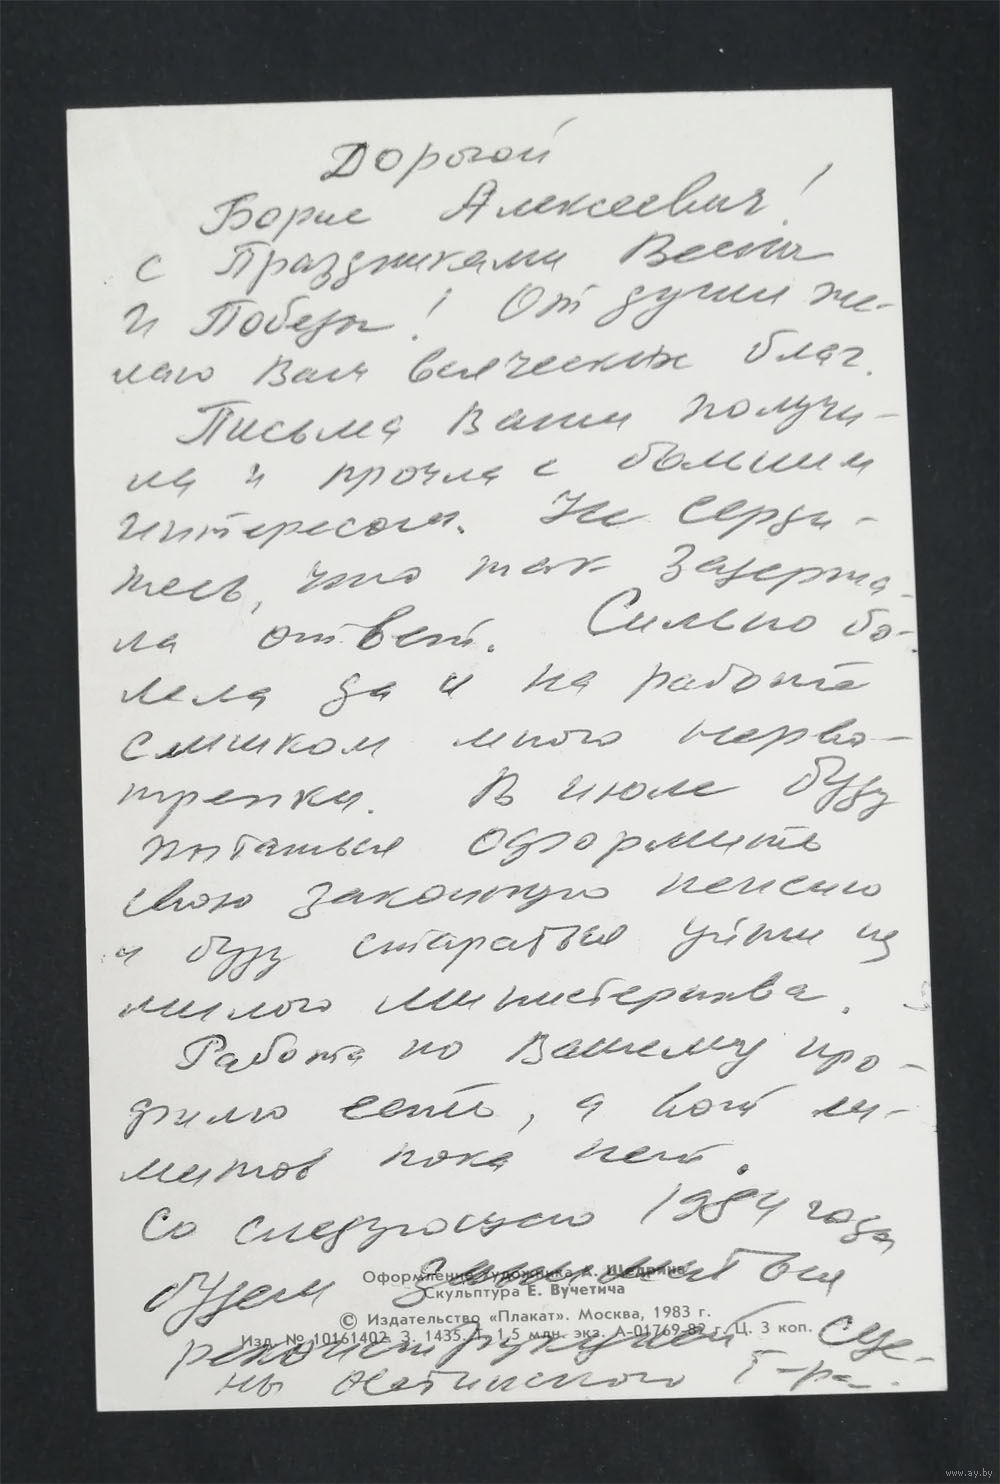 Дорогой
Борис Алексеевич!
с Праздниками Весны
и Победы! От души же-
лаю Вам всяческих благ.
Письма Ваши получи-
ла и прочла с большим
интересом. Не серди-
тесь, что так задержа-
ла ответ. Сильно бо-
лела да и на работе
слишком много нерво-
трепки. В июле буду
пытаться оформить
свою законную пенсию
и буду стараться уйти из
милого министерства.
Работа по Вашему про-
филю есть, а вот ли-
митов пока нет.
Со следующего 1984 года
будем заниматься
реконструкцией сце-
ны Т-ра.
Оформление художника А. Щедрина
Скульптура Е. Вучетича
© Издательство «Плакат». Москва, 1983 г.
Изд. № 10161402. З. 1435. Т. 1,5 млн. экз. А-01769-82 г. Ц. 3 коп.
www.ay.by